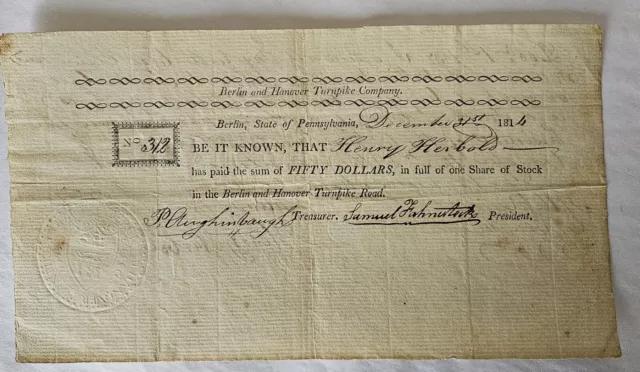 Berlin and Hanover Turnpike Company.
Berlin, State of Pennsylvania, December 31st 1814
No 312
BE IT KNOWN, THAT Henry Herbold
has paid the sum of FIFTY DOLLARS, in full of one Share of Stock
in the Berlin and Hanover Turnpike Road.
P. Aughinbaugh Treasurer. Samuel Fahnestock President.